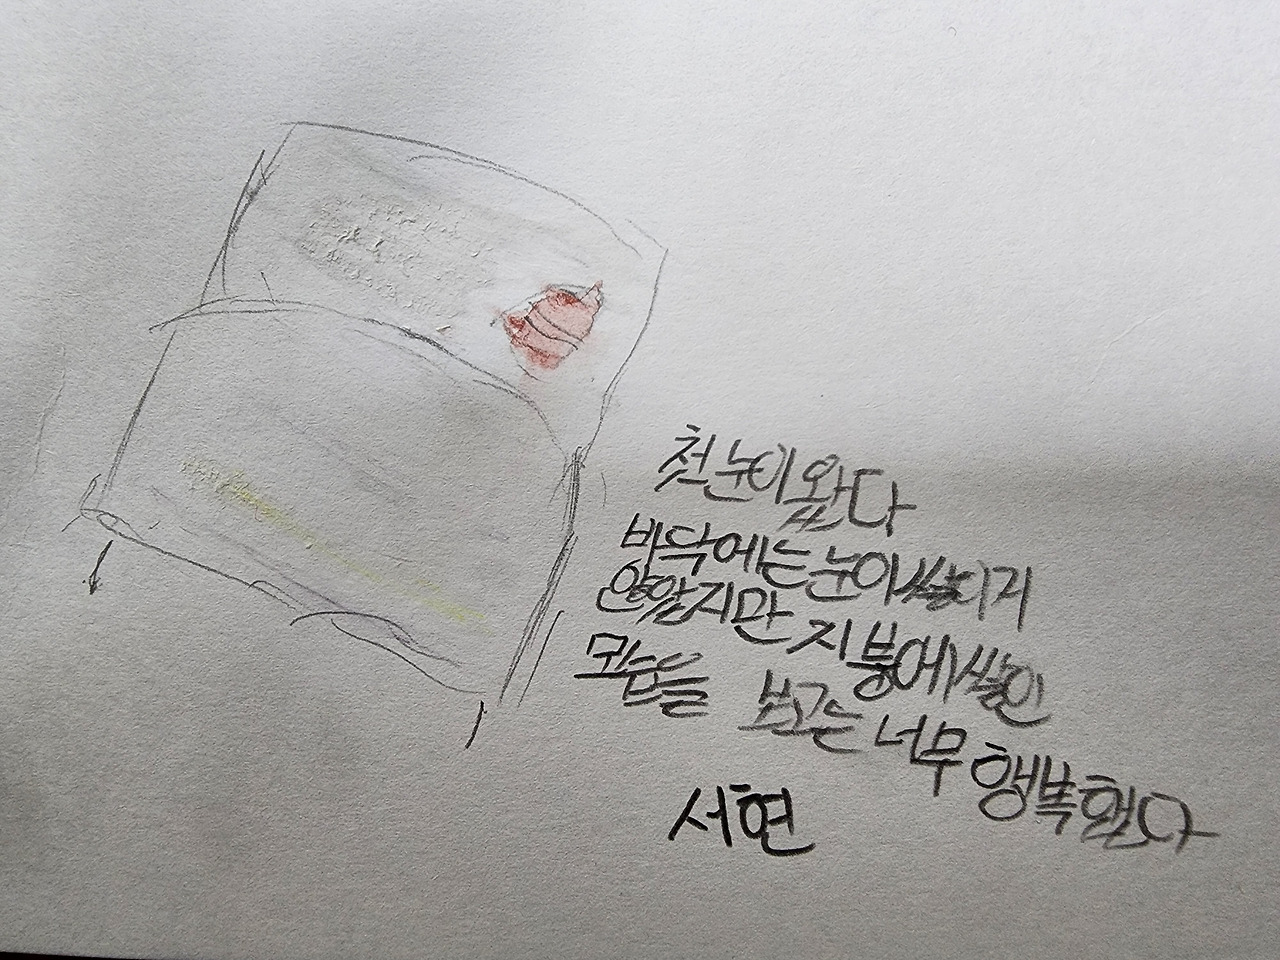 첫눈이 왔다
바닥에는 눈이 쌓이지
않았지만 지붕에 쌓인
모습을 보고는 너무 행복했다
서현